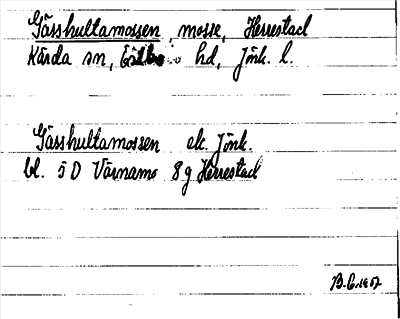 Gässhultamossen, mosse, Herrestad
Kärda sn, Östbo hd, Jönk. l.
Gässhultamossen ek. Jönk.
bl. 5 D Värnamo 8 g Herrestad